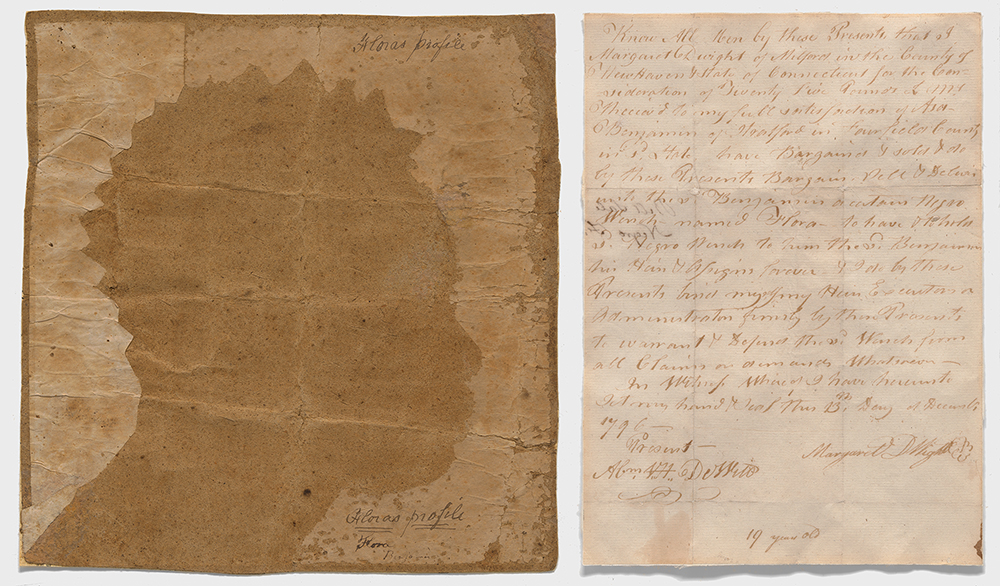 Floras profile
Floras profile
Flora
Know All Men by these Presents that I
Margaret Dwight of Milford in the County of
New Haven & State of Connecticut for the Con-
sideration of Twenty Five Pounds
Receivd to my full satisfaction of Asa
Benjamin of Stratford in Fairfield County
in sd. State have Bargaind & sold & do
by these Presents Bargain Sell & Deliver
unto the sd. Benjamin a certain Negro
Wench named Flora to have & to hold
sd. Negro Wench to him the sd. Benjamin
his Heirs & Assigns forever & I do by these
Presents bind myself my Heirs Executors &
Administrators firmly by these Presents
to warrant & Defend the sd. Wench from
all Claims or demands Whatsoever
In Witness Whereof I have hereunto
Set my hand & Seal this 13th Day of December
1796
Present
Margaret Dwight
Abm. V. H. DeWitt
19 years old